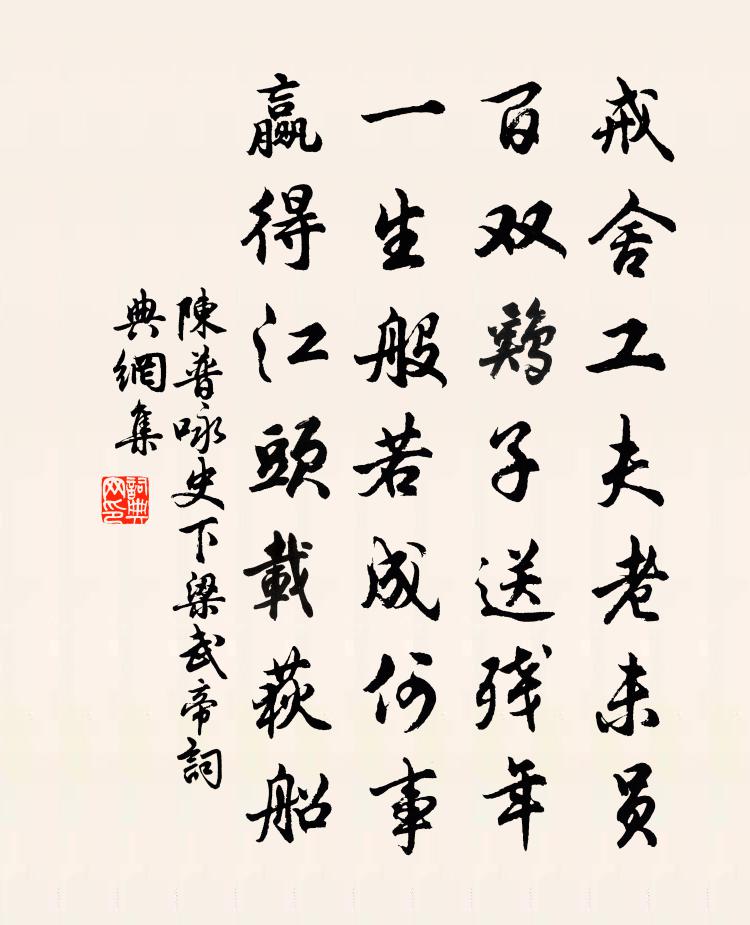 戒舍工夫老未员
百双鸡子送残年
一生般若成何事
赢得江頭載荻船
陳普咏史下梁武帝詞
典網集
詞典网印